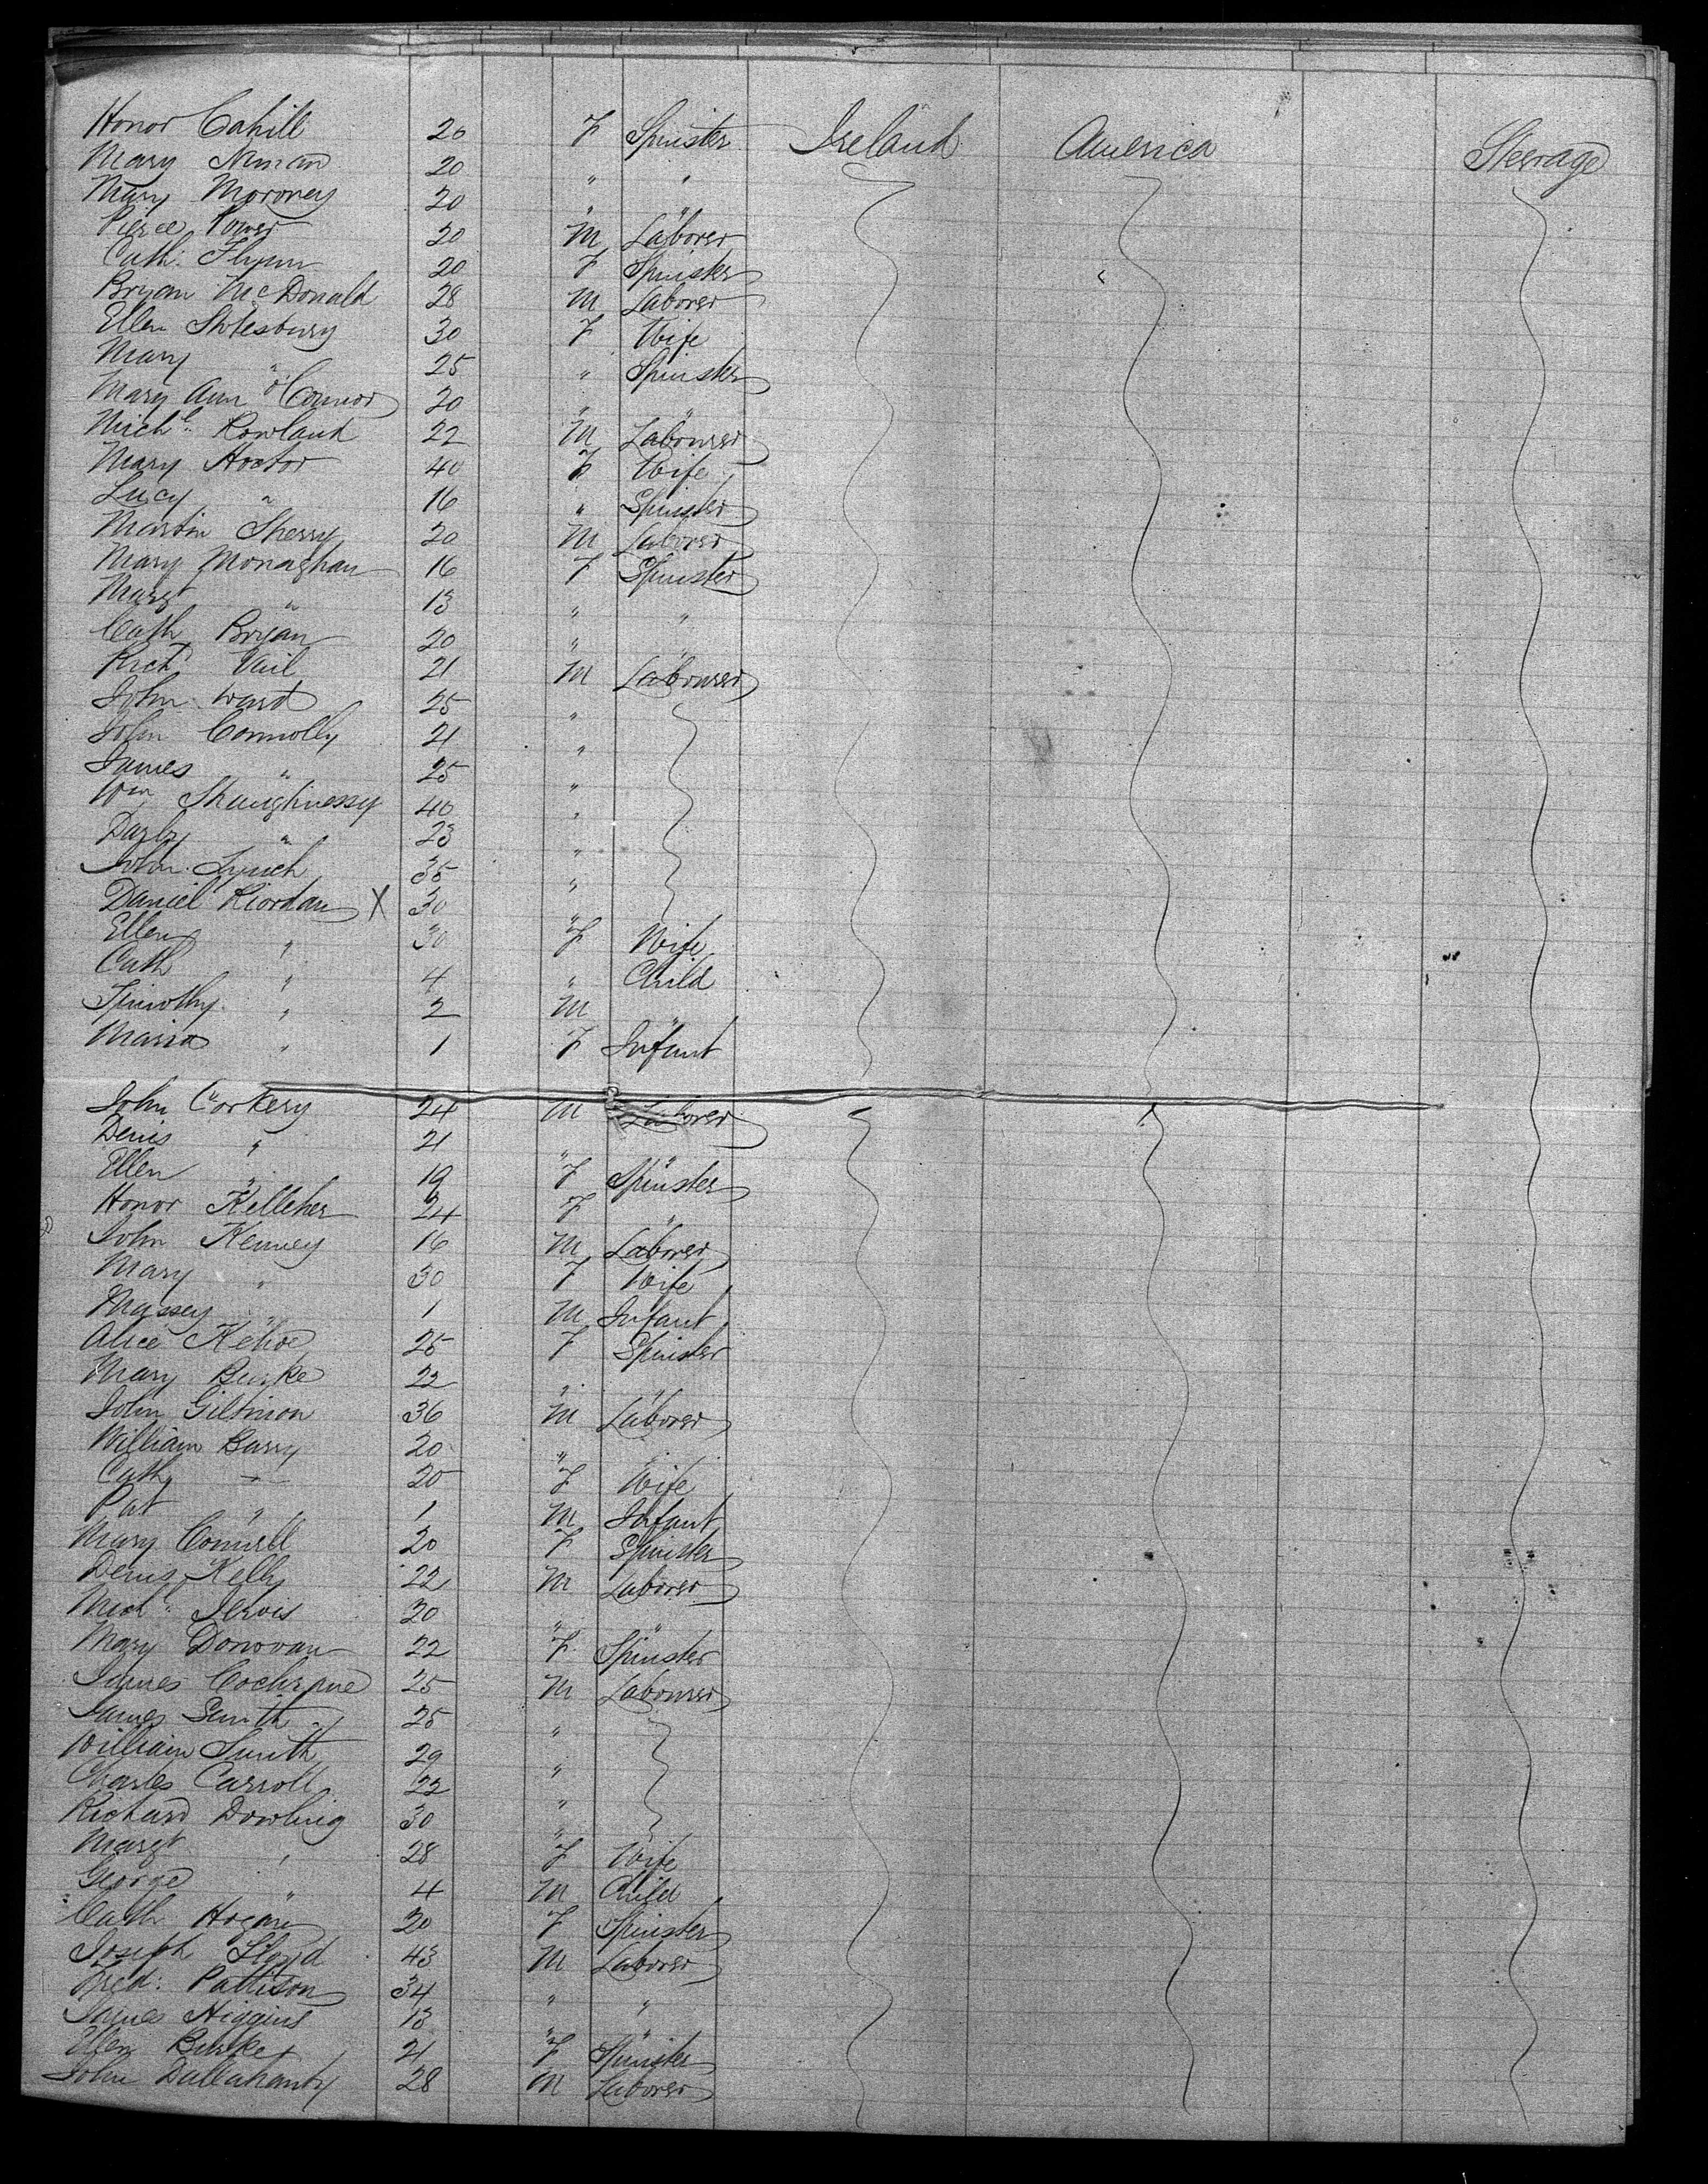 Honor Cahill 20 F Spinster Ireland America Steerage
Mary 20 " "
Mary Moroney 20 " "
Pierce Power 20 M Laborer
Cath: Flynn 20 F Spinster
Bryan McDonald 28 M Laborer
Ellen Stotesbury 30 F Wife
Mary " 25 " Spinster
Mary Ann O'Connor 20 " "
Michl. Rowland 22 M Labourer
Mary Hoctor 40 F Wife
Lucy " 16 " Spinster
Martin Sherry 20 M Laborer
Mary Monaghan 16 F Spinster
Margt " 13 " "
Cath Bryan 20 " "
Richd Vail 21 M Labourer
John Ward 25 "
John Connolly 21 "
James " 25 "
Wm Shaughnessy 40 "
Darby " 23 "
John Lynch 35 "
Daniel Riordan X 30 "
Ellen " 30 F Wife
Cath " 4 " Child
Timothy " 2 M "
Maria " 1 F Infant
John Corkery 24 M Laborer
Denis " 21 " "
Ellen " 19 F Spinster
Honor Kelleher 24 F "
John Kenney 16 M Laborer
Mary " 30 F Wife
" 1 M Infant
Alice Kehoe 25 F Spinster
Mary Burke 22 " "
John 36 M Laborer
William Barry 20 " "
Cath " 20 F Wife
Pat " 1 M Infant
Mary Connell 20 F Spinster
Denis Kelly 22 M Laborer
Michl. 20 " "
Mary Donovan 22 F Spinster
James Cochrane 25 M Labourer
James Smith 25 "
William Smith 29 "
Charles Carroll 22 "
Richard Dowling 30 "
Margt " 28 F Wife
George " 4 M Child
Cath Hogan 20 F Spinster
Joseph Lloyd 43 M Laborer
Fred: Pattison 34 " "
James Higgins 13 " "
Ellen Burke 21 F Spinster
John Dallahanty 28 M Laborer